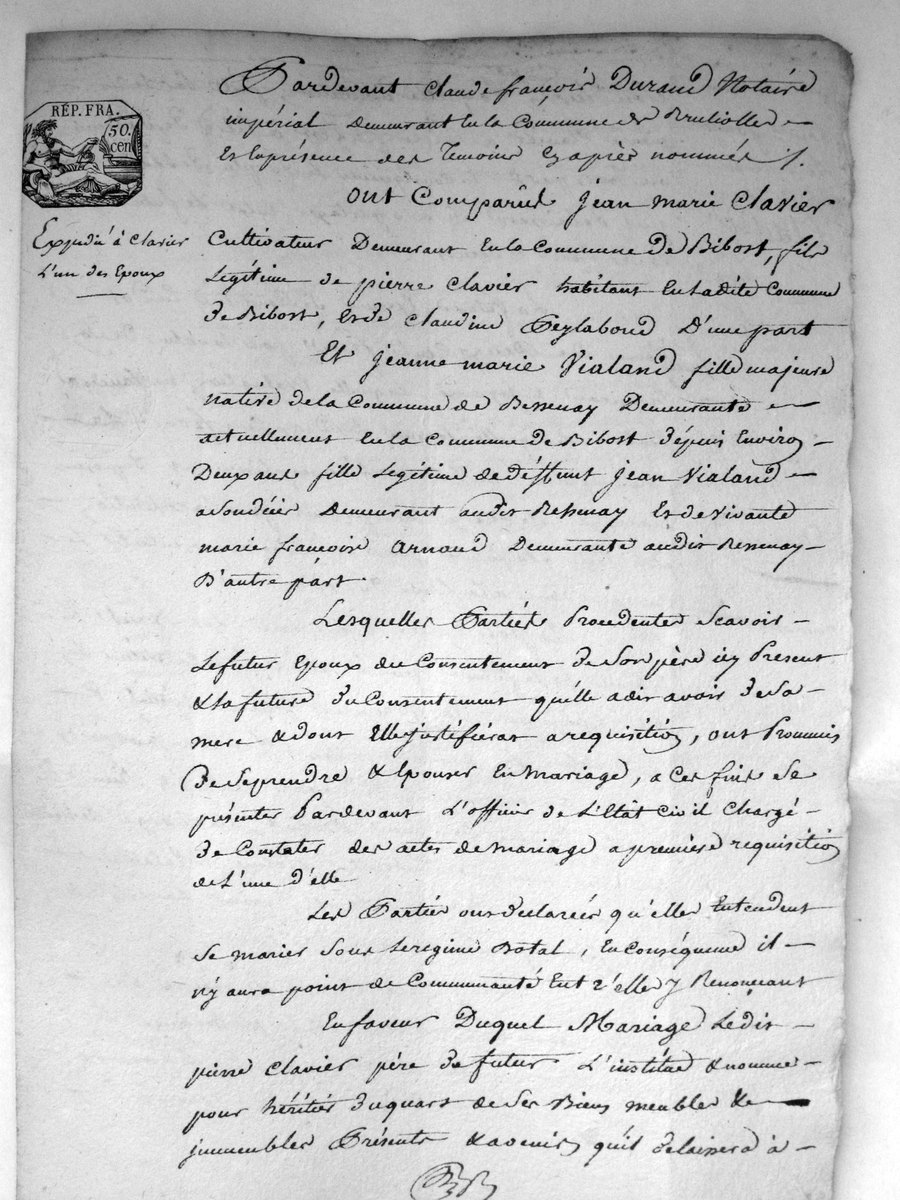 RÉP. FRA.
50.
cen
Expédié à Clavier
L'un des Epoux
Pardevant Claude françois Durand Notaire
impérial Demeurant En la Commune de Brulioles
Et En présence des Temoins Cy après nommés /.
ont Comparus jean marie Clavier
Cultivateur Demeurant En la Commune De Bibost, fils
Legitime de pierre Clavier habitant En Ladite Commune
De Bibost, Et De Claudine Peylaboud D'une part
Et jeanne marie Vialand fille majeure
native de la Commune de Bessenay Demeurante
actuellement En la Commune De Bibost Dépuis Enviro
Deux ans fille Legitime de Déffunt jean Vialand
a son décès Demeurant audit Bessenay Et de Vivante
marie françoise Arnaud Demeurante audit Bessenay
D'autre part
Lesquelles Parties Procedentes Scavoir
Le futur Epoux du Consentement De Son père icy Present
& la future Du Consentement qu'elle a dit avoir De Sa
mere & dont Elle justifiéra a requisition, ont Prommis
De Se prendre & Epouser En Mariage, a Ces fins de Se
présenter Pardevant L'officier de L'Etat Civil Chargé
De Constater des actes de Mariage a premiere requisition
de L'une d'elle
Les Parties ont Declarées qu'elles Entendent
Se marier Sous Le regime Dotal, En Conséquence il
n'y aura point de Communauté Entr'elle y Renoncant
En faveur Duquel Mariage Ledit
pierre Clavier père De futur L'institue & nomme
pour héritier Du quart de Ses Biens meubles &
immeubles Présents & avenir qu'il Delaissera à